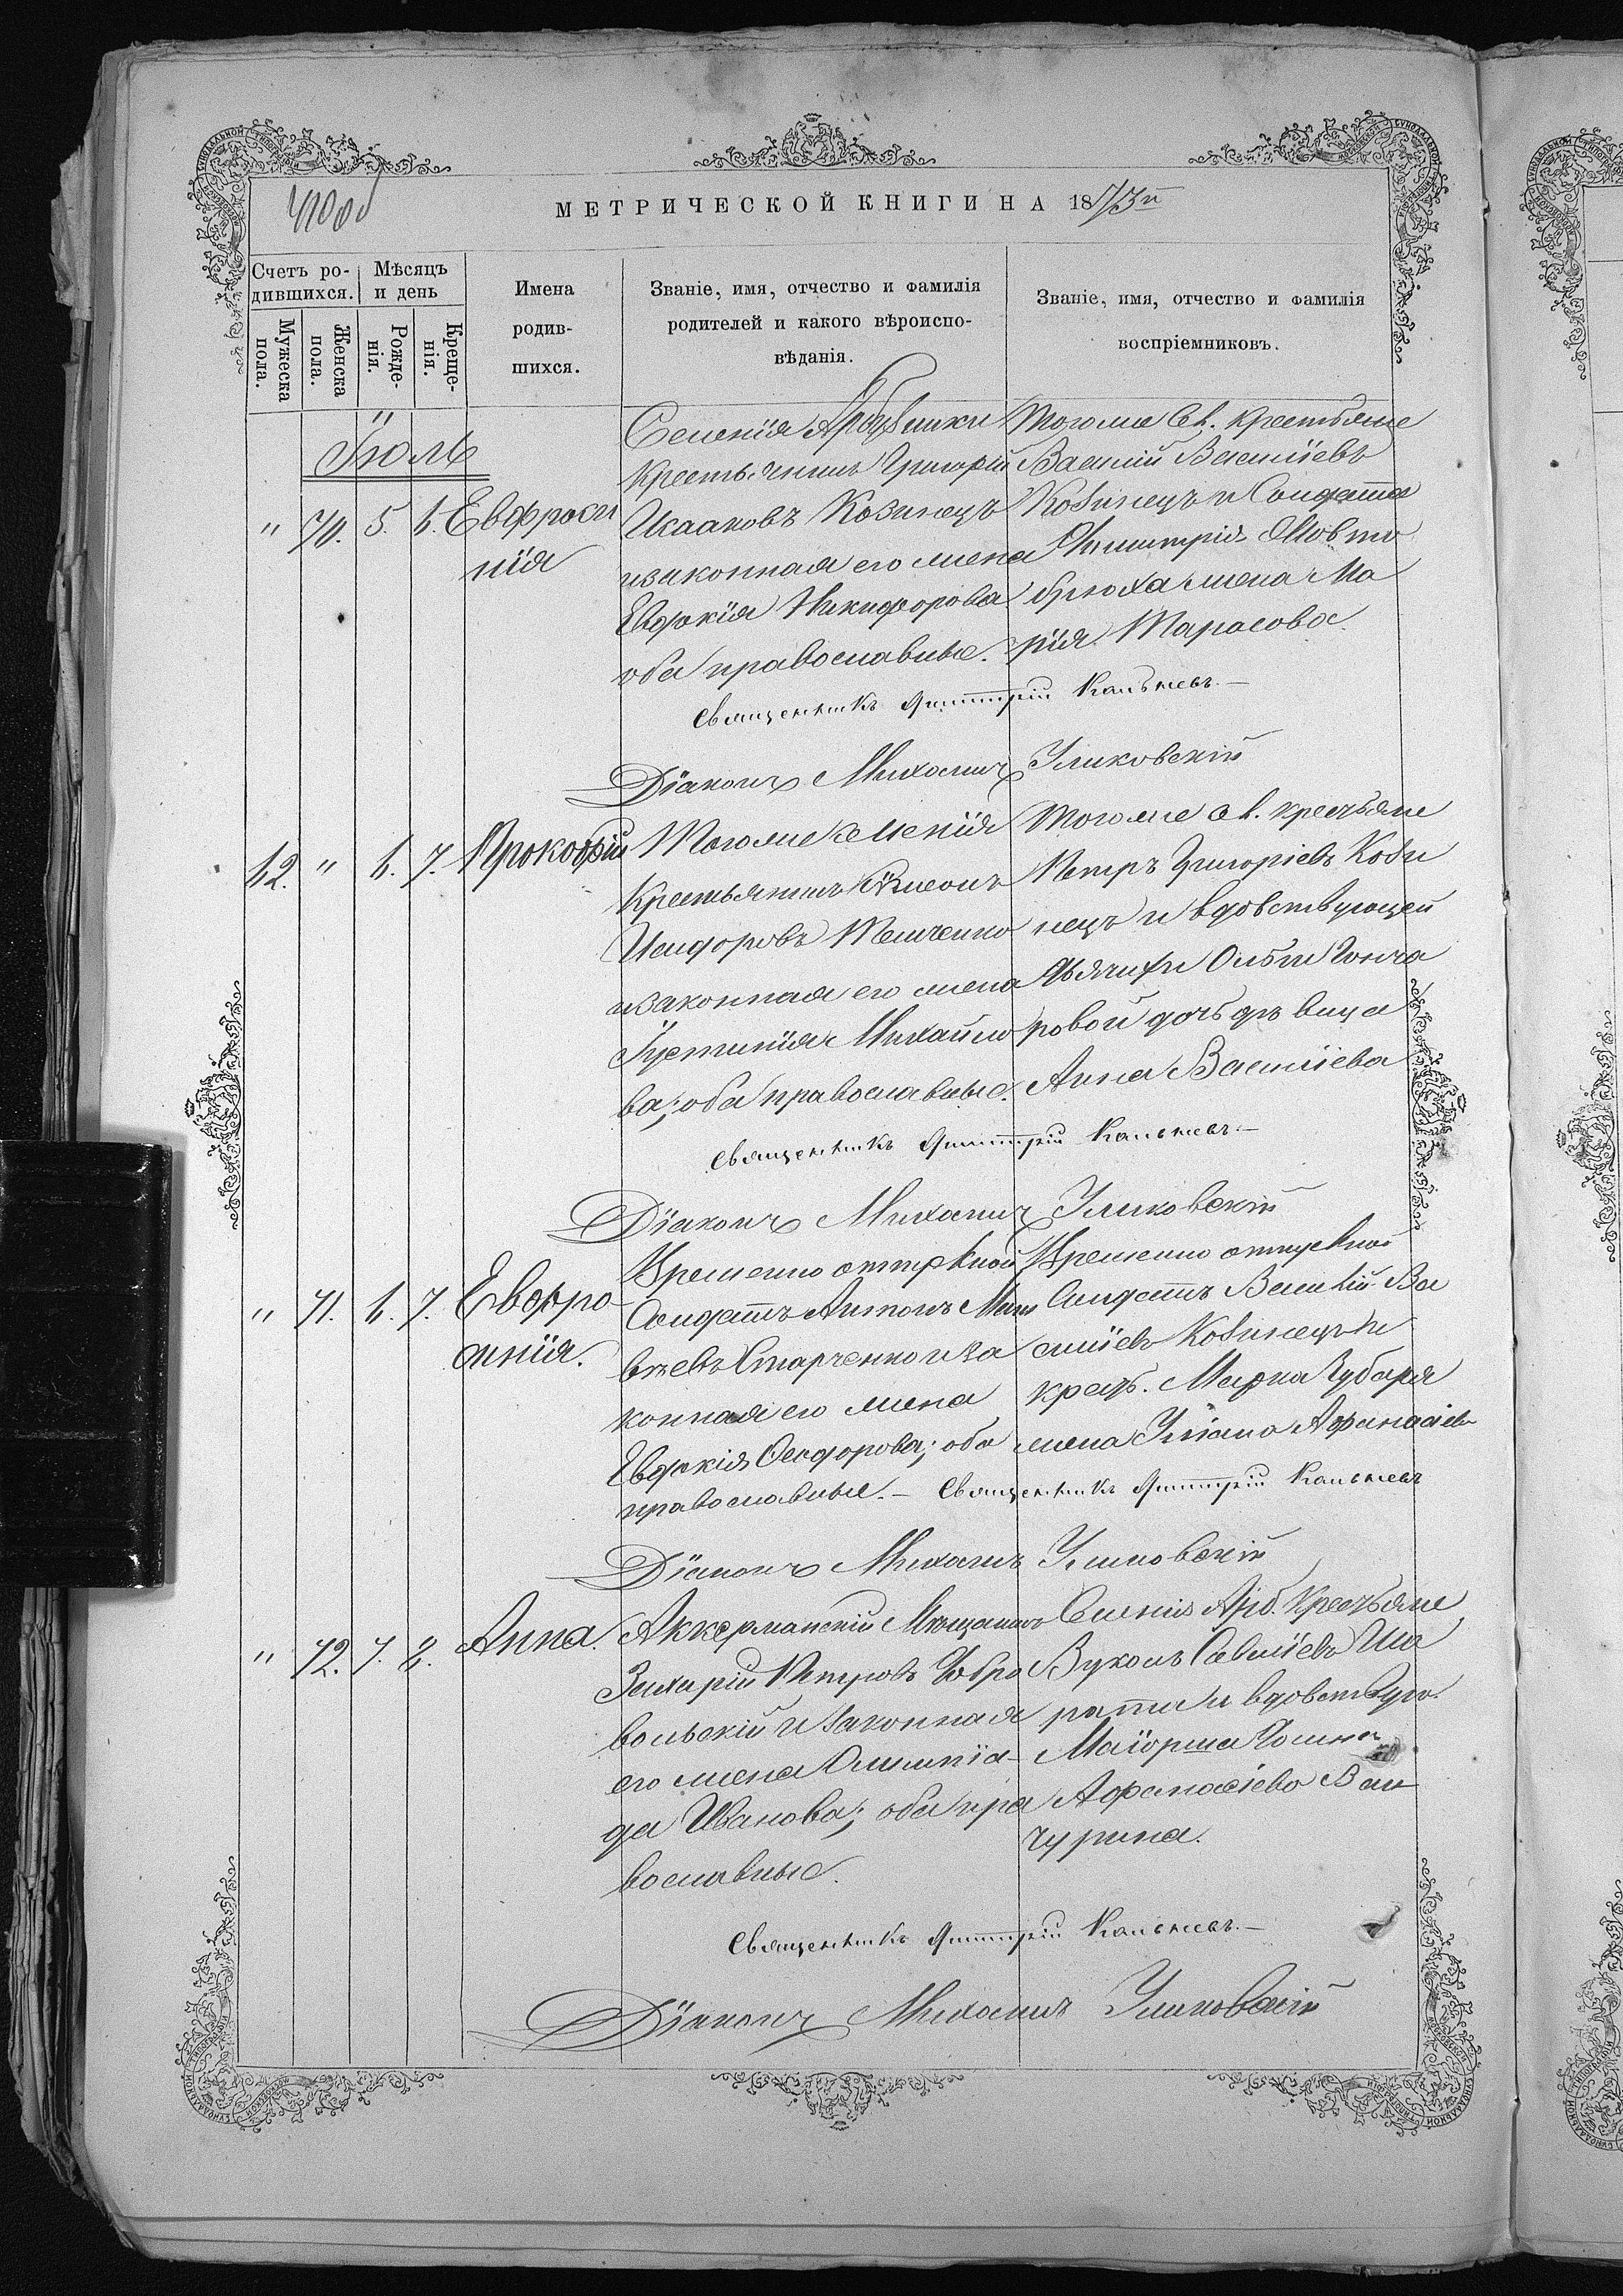 МЕТРИЧЕСКОЙ КНИГИ НА 1873й
Счетъ родившихся.
Мѣсяцъ и день
Мужеска пола.
Женска пола.
Рожденія.
Крещенія.
Имена
родив-
шихся.
Званіе, имя, отчество и фамилія
родителей и какого вѣроиспо-
вѣданія.
Званіе, имя, отчество и фамилія
воспріемниковъ.
Іюль
" 70. 5. 6. Евфроси
нія
Селенія Арбузинки
крестьянинъ Григорій
Исааковъ Козинецъ
и законная его жена
Евдокія Никифорова
оба православные.
Тогоже сел. крестьяне
Василій Васильевъ
Козинецъ и Солдата
Димитрія Жовто
брюха жена Ма
рія Тарасова.
Священникъ Димитрій
Діаконъ Михаилъ Уликовскій
62. " 6. 7. Прокофій
Тогоже селенія
Крестьянинъ Симеонъ
Исидоровъ
и законная его жена
Іустинія Михайло
ва; оба православные.
Тогоже сел. крестьяне
Петръ Григоріевъ Кози
нецъ и вдовствующей
Ольги Гонча
ровой дочь дѣвица
Анна Васильева
Священникъ Димитрій
Діаконъ Михаилъ Уликовскій
" 71. 6. 7. Евфро
синія.
Временно отпускной
Солдатъ Антонъ Мат
вѣевъ Старченко и за
конная его жена
Евдокія Ѳеодорова; оба
православные.
Временно отпускной
Солдатъ Василій Ва
силіевъ Козинецъ и
крест. Марка Чубаря
жена Уліана Афанасіева
Священникъ Димитрій
Діаконъ Михаилъ Уликовскій
" 72. 7. 8. Анна.
Аккерманскій Мѣщанинъ
Захарій Петровъ Добро
вольскій и законная
его жена Олимпіа-
да Иванова; оба пра
вославные.
Селенія Арб. Крестьяне
Вуколъ Савеліевъ Ша
и вдовствую.
Маіорша
Афанасіева Бан
чурина.
Священникъ Димитрій
Діаконъ Михаилъ Уликовскій